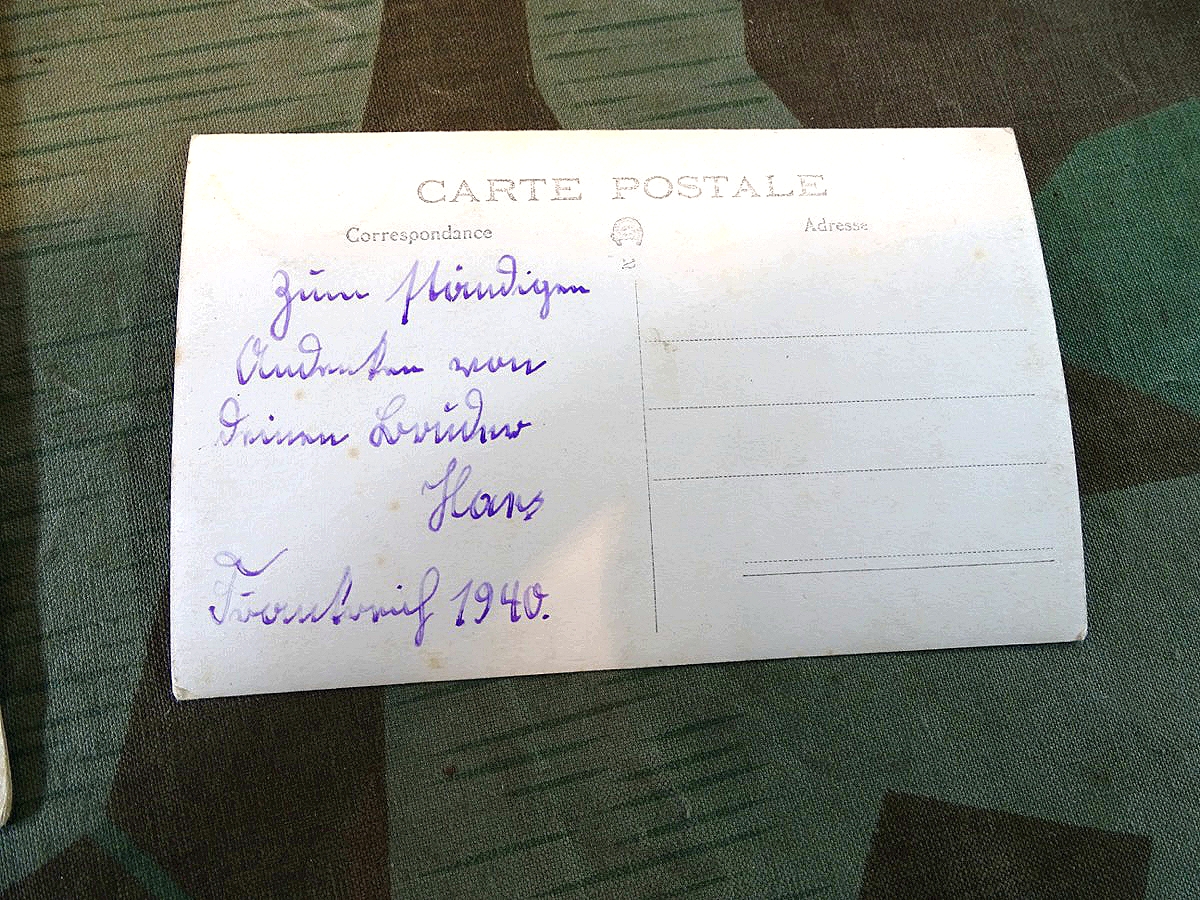 CARTE POSTALE
Correspondance
Adresse
2
Zum ständigen
Andenken von
deinen Bruder
Hans
Frankreich 1940.